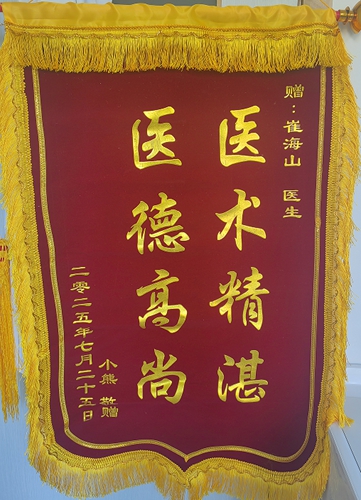 赠：崔海山 医生
医术精湛
医德高尚
小熊 敬赠
二零二五年七月二十五日